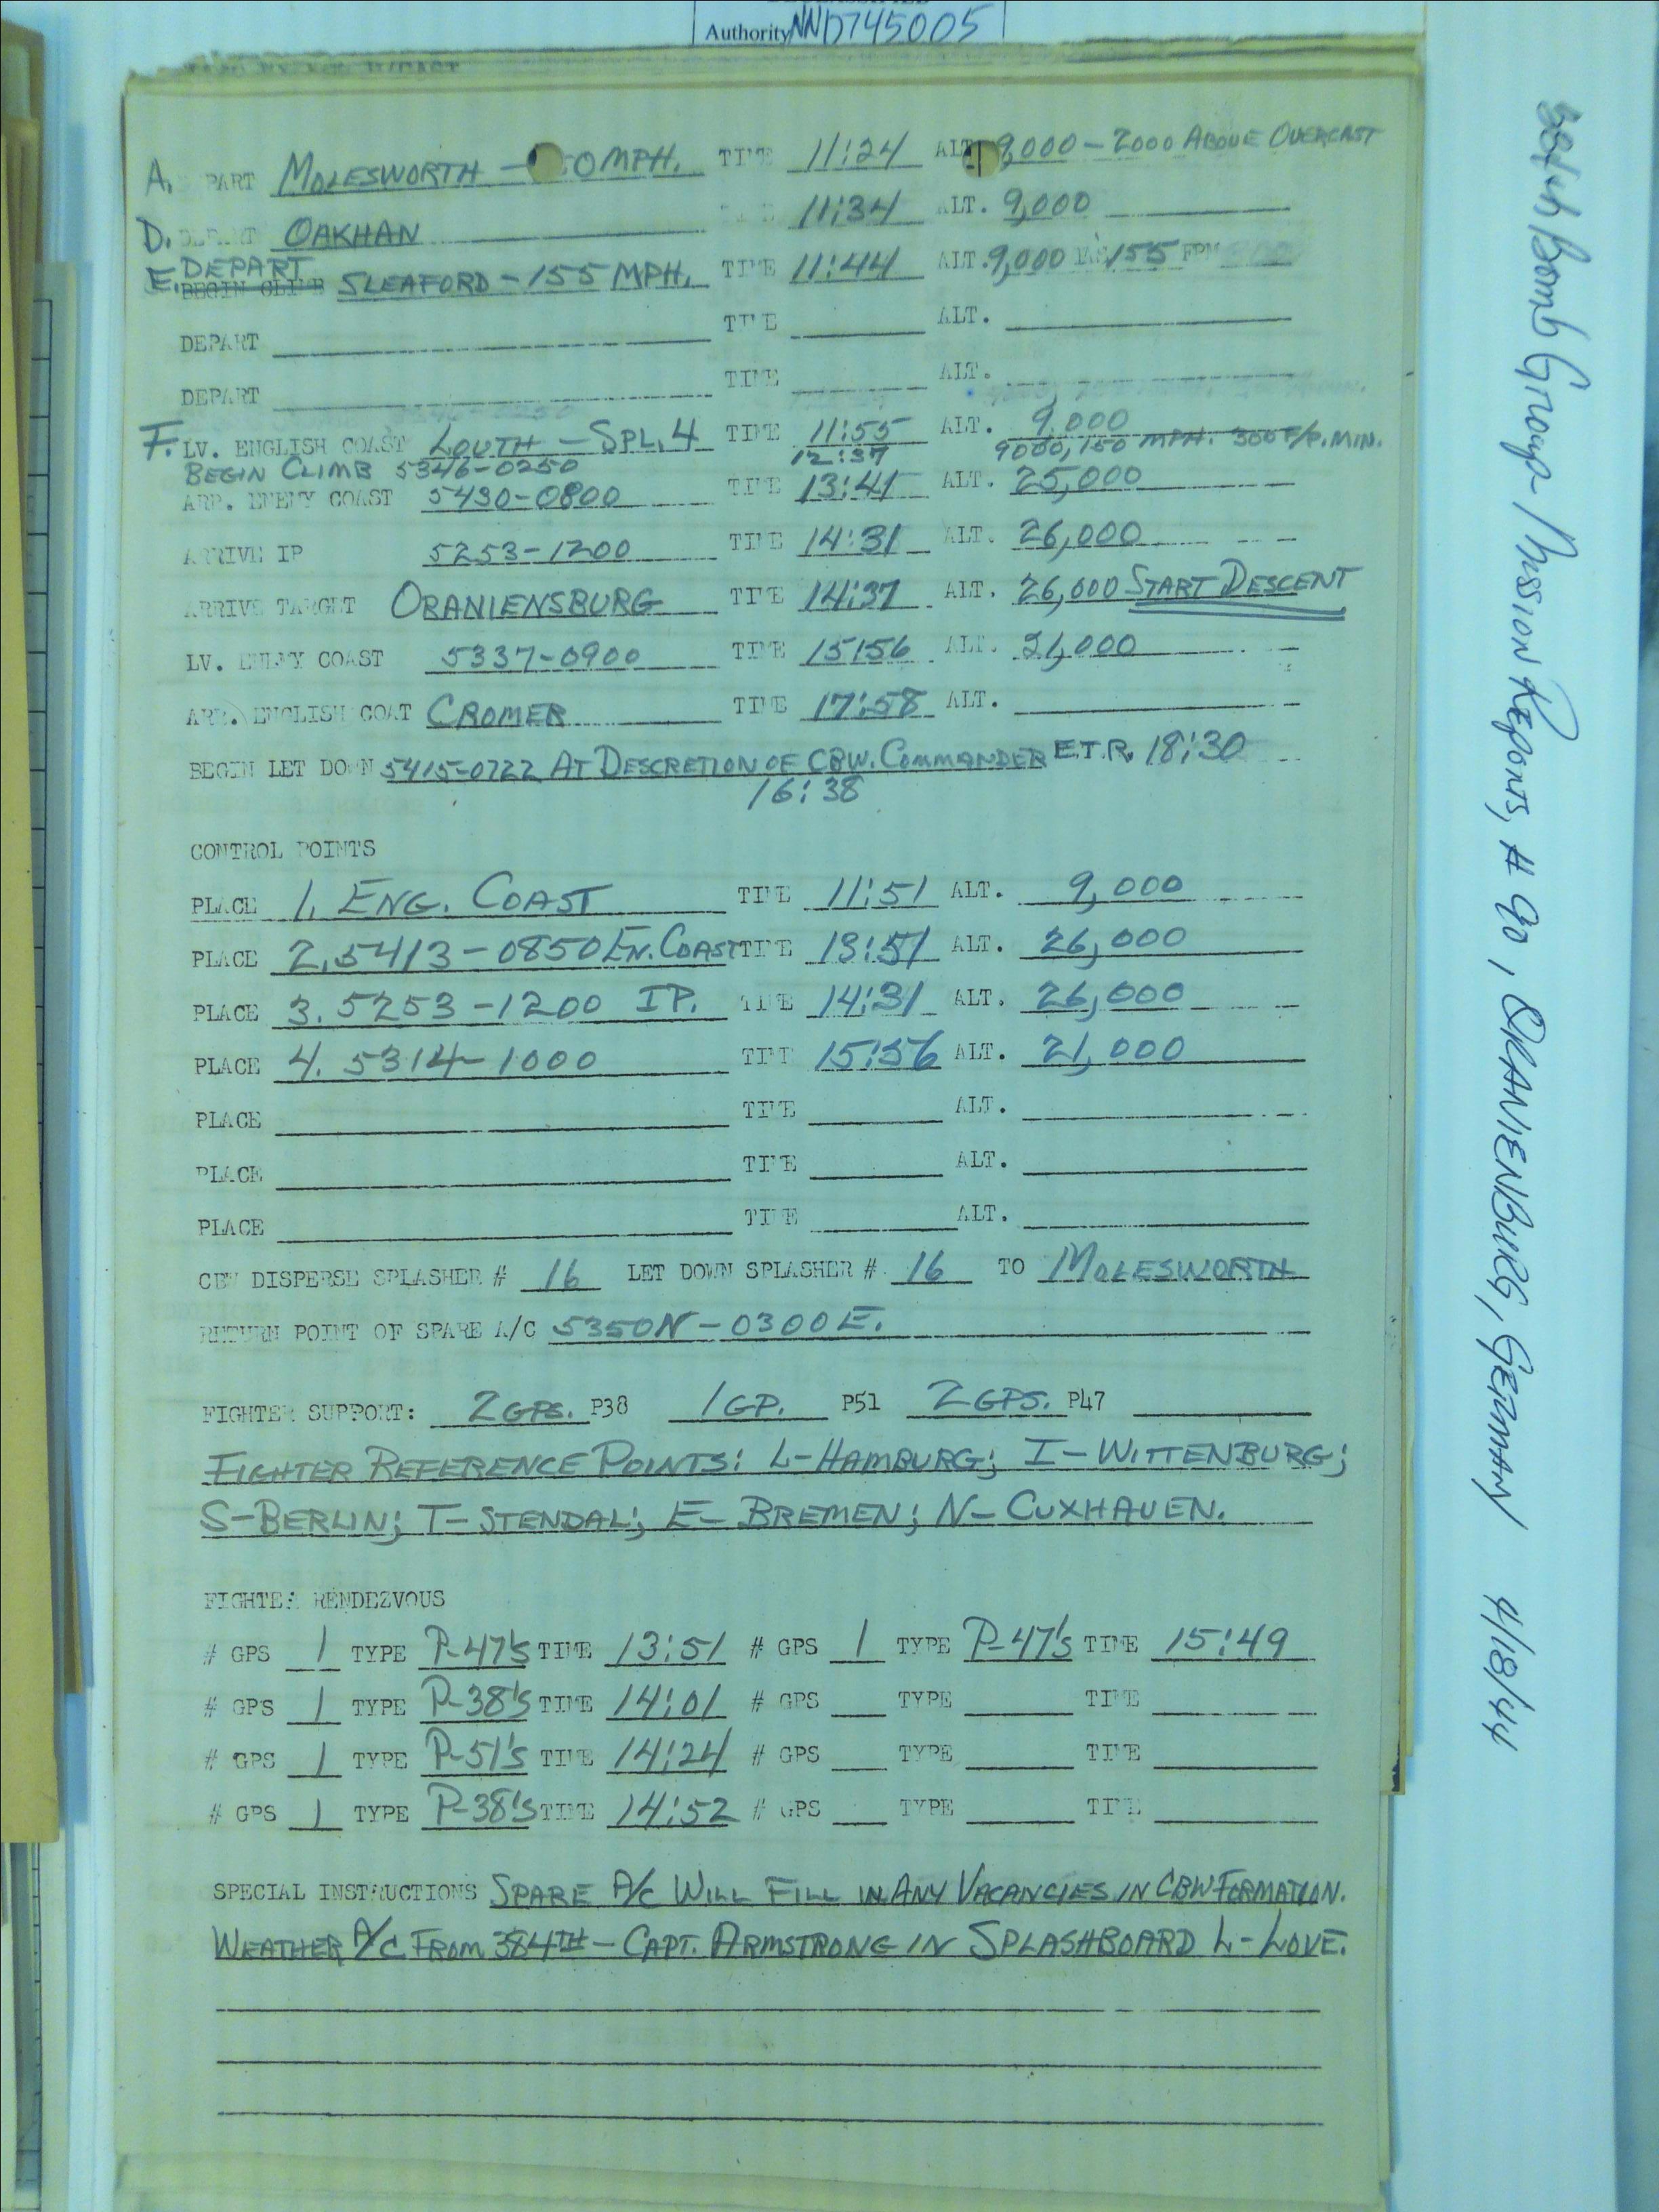 Authority NND745005
A. PART MOLESWORTH - 0 MPH. TIME 11:24 ALT. 9,000 - 2000 ABOVE OVERCAST
D. DEPART OAKHAN 11:34 ALT. 9,000
DEPART
E. BEGIN CLIMB SLEAFORD - 155 MPH. TIME 11:44 ALT. 9,000 IAS 155 FPM
DEPART TIME ALT.
DEPART TIME ALT.
F. LV. ENGLISH COAST LOUTH - SPL. 4 TIME 11:55 ALT. 9,000
BEGIN CLIMB 5346-0250 12:37 9000, 150 MPH. 300 F/P. MIN.
ARR. ENEMY COAST 5430-0800 TIME 13:41 ALT. 25,000
ARRIVE IP 5253-1200 TIME 14:31 ALT. 26,000
ARRIVE TARGET ORANIENSBURG TIME 14:37 ALT. 26,000 START DESCENT
LV. ENEMY COAST 5337-0900 TIME 15:56 ALT. 21,000
ARR. ENGLISH COAT CROMER TIME 17:58 ALT.
BEGIN LET DOWN 5415-0722 AT DESCRETION OF CBW. COMMANDER E.T.R. 18:30
16:38
CONTROL POINTS
PLACE 1. ENG. COAST TIME 11:51 ALT. 9,000
PLACE 2. 5413-0850 EN. COAST TIME 13:51 ALT. 26,000
PLACE 3. 5253-1200 IP. TIME 14:31 ALT. 26,000
PLACE 4. 5314-1000 TIME 15:36 ALT. 21,000
PLACE TIME ALT.
PLACE TIME ALT.
PLACE TIME ALT.
CBW DISPERSE SPLASHER # 16 LET DOWN SPLASHER # 16 TO MOLESWORTH
RETURN POINT OF SPARE A/C 5350N - 0300E.
FIGHTER SUPPORT: 2 GPS. P38 1 GP. P51 2 GPS. P47
FIGHTER REFERENCE POINTS: L-HAMBURG; I-WITTENBURG;
S-BERLIN; T-STENDAL; E-BREMEN; N-CUXHAVEN.
FIGHTER RENDEZVOUS
# GPS 1 TYPE P-47's TIME 13:51 # GPS 1 TYPE P-47's TIME 15:49
# GPS 1 TYPE P-38's TIME 14:01 # GPS TYPE TIME
# GPS 1 TYPE P-51's TIME 14:24 # GPS TYPE TIME
# GPS 1 TYPE P-38's TIME 14:52 # GPS TYPE TIME
SPECIAL INSTRUCTIONS SPARE A/C WILL FILL IN ANY VACANCIES IN CBW FORMATION.
WEATHER A/C FROM 384TH - CAPT. ARMSTRONG IN SPLASHBOARD L-LOVE.
384th Bomb Group Mission Reports, # 90, ORANIENBURG, GERMANY 4/18/44